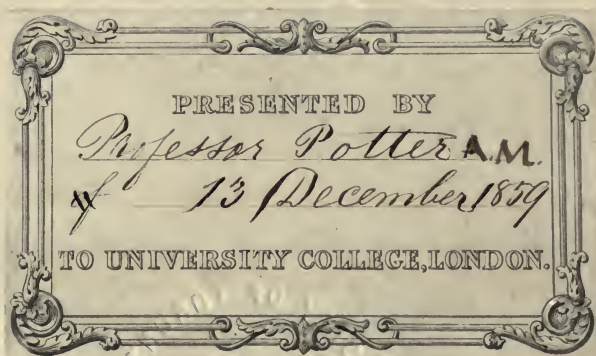 PRESENTED BY
Professor Potter A.M.
13 December 1859
TO UNIVERSITY COLLEGE, LONDON.